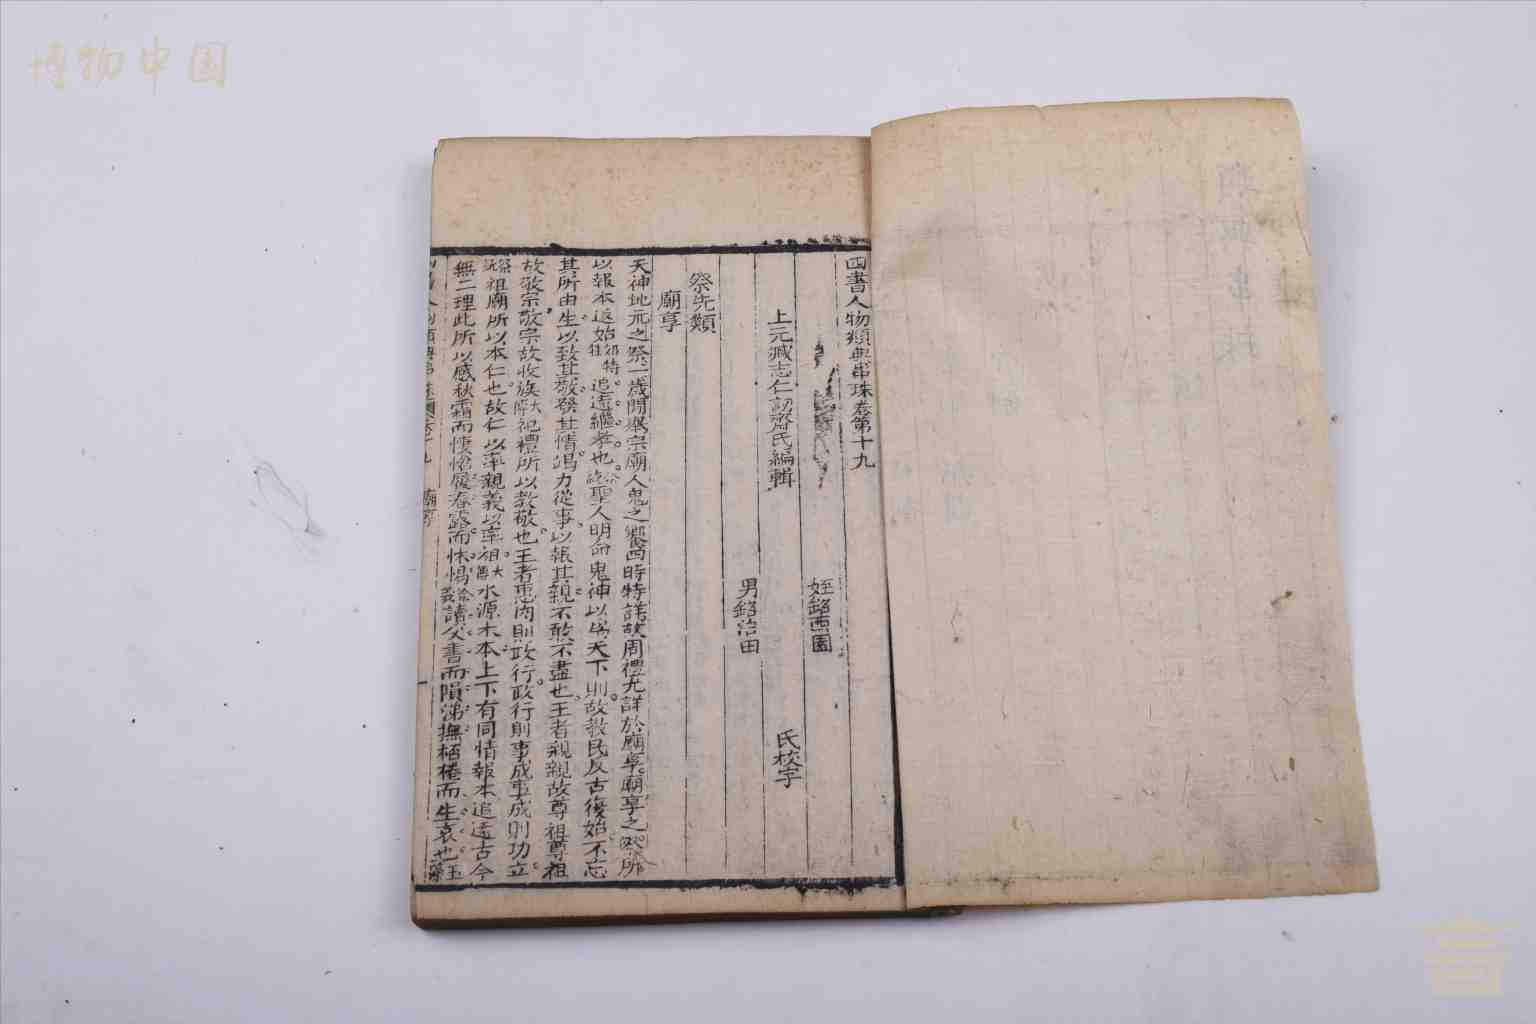 博物中国
四書人物類典串珠卷第十九
上元臧志仁訒齋氏編輯
姪銘西園
男銘治田
氏校字
祭先類
廟享
天神地示之祭一歲閒舉宗廟人鬼之饗四時特詳故周禮尤詳於廟享廟享之祭所
以報本返始郊特牲追遠繼孝也祭統聖人明命鬼神以為天下則故教民反古復始不忘
其所由生以致其敬發其情竭力從事以報其親不敢不盡也王者親親故尊祖尊祖
故敬宗敬宗故收族大傳祀禮所以教敬也王者惠肉則政行政行則事成事成則功立
祭統祖廟所以本仁也故仁以率親義以率祖大傳水源木本上下有同情報本追遠古今
無二理此所以感秋霜而悽愴履春露而怵惕祭義讀父書而隕涕撫桮棬而生哀也玉藻